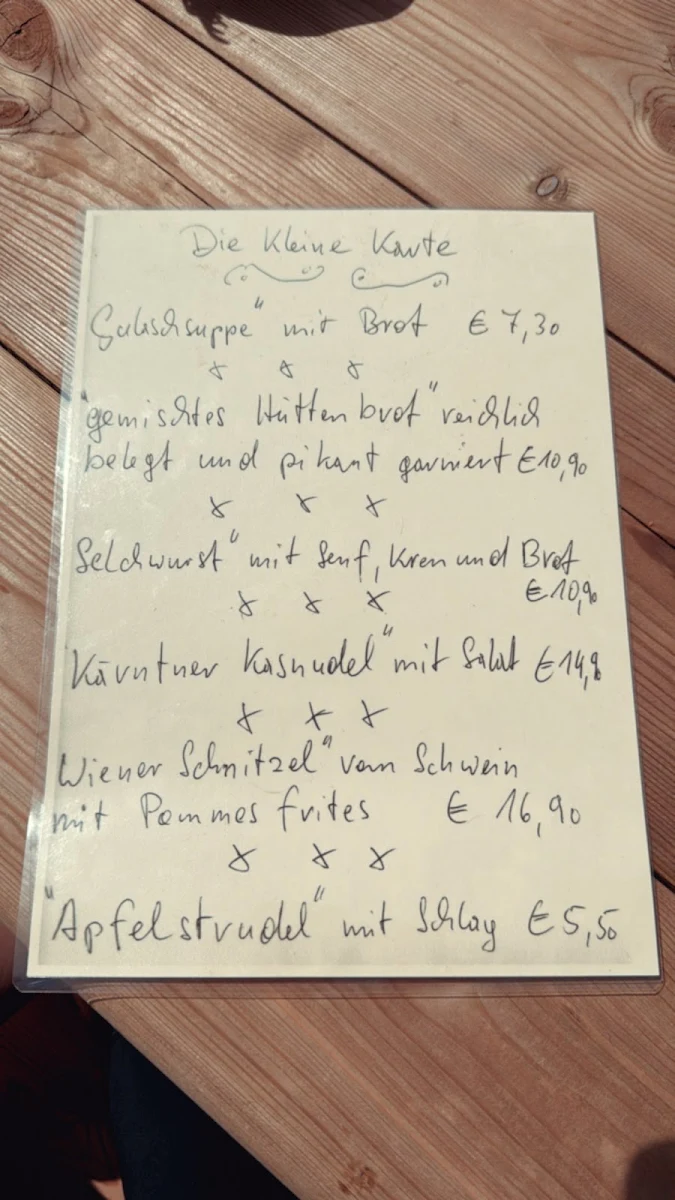 Die Kleine Karte
Gulaschsuppe" mit Brot € 7,30
x x x
"gemischtes Hüttenbrot" reichlich
belegt und pikant garniert € 10,90
x x x
Selchwurst" mit Senf, Kren und Brot
€ 10,90
x x x
Kärntner Kasnudel" mit Salat € 14,90
x x x
Wiener Schnitzel" vom Schwein
mit Pommes frites € 16,90
x x x
"Apfelstrudel" mit Schlag € 5,50